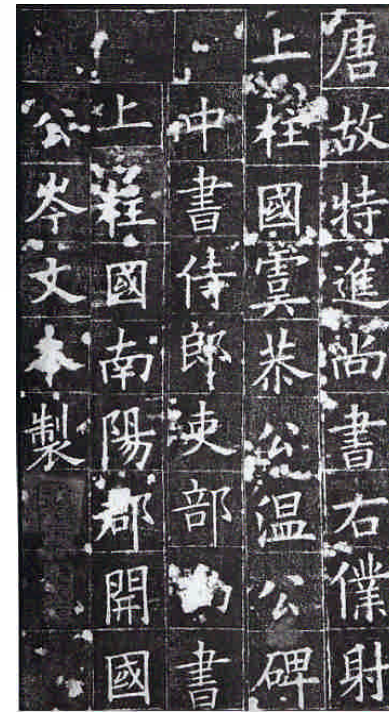 唐故特進尚書右僕射
上柱國虞恭公温公碑
中書侍郎吏部書
上柱國南陽郡開國
公岑文本製